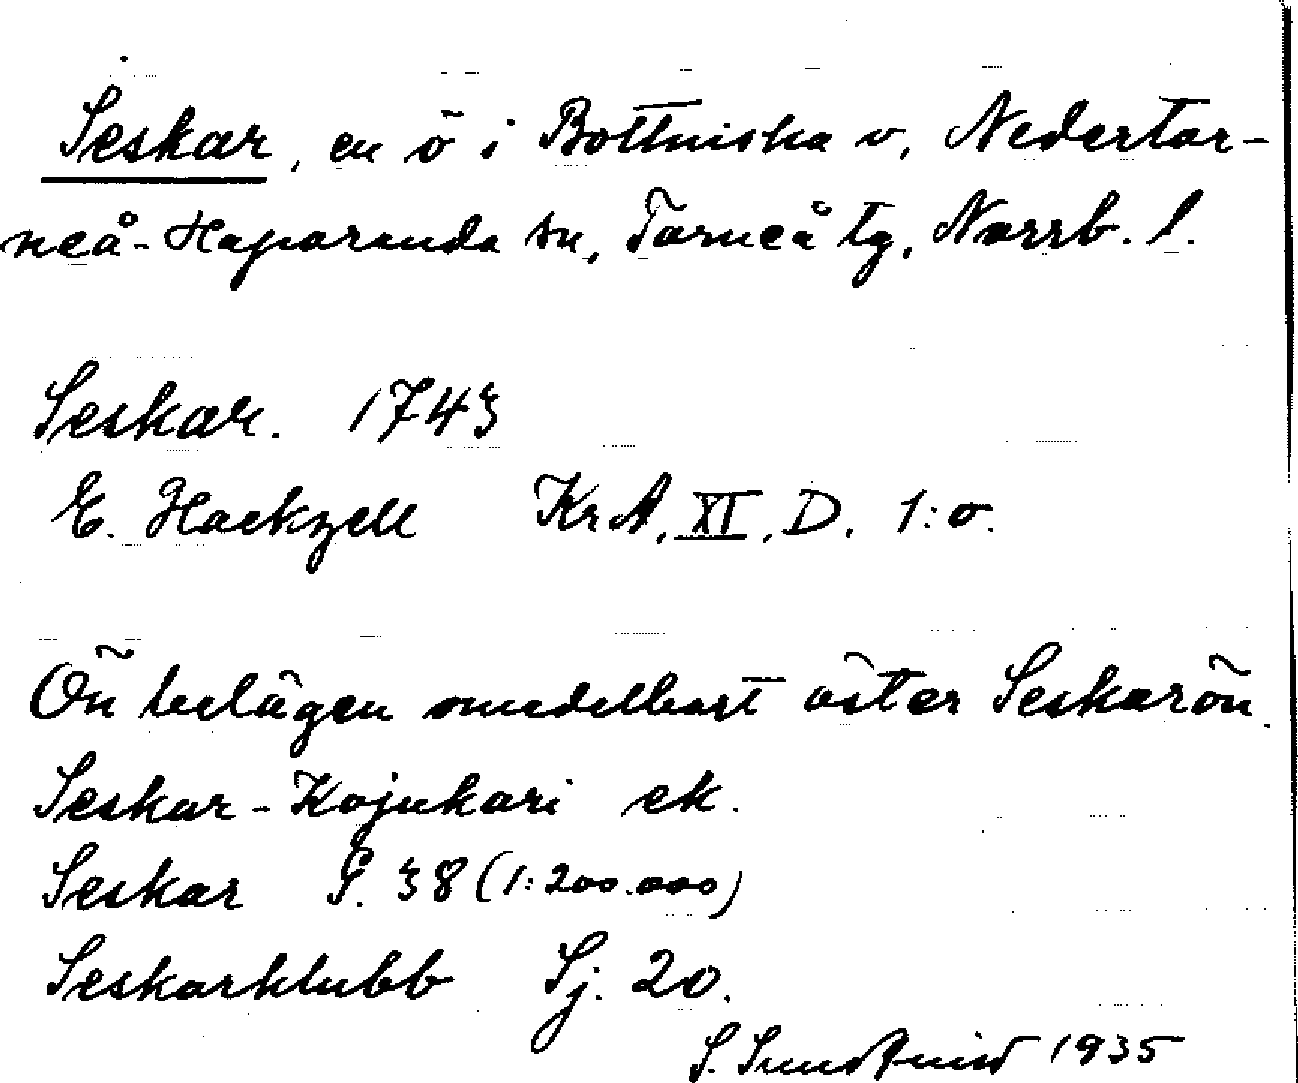 Seskar, en ö i Bottniska v, Nedertor-
neå-Haparanda sn, Torneå tg, Norrb. l.
Seskar. 1743
E. Hackzell KrA, XI, D. 1:o.
Ön belägen omedelbart öster Seskarön.
Seskar-Kojukari ek.
Seskar S. 38 (1:200.000)
Seskarklubb Sj. 20.
S. Sundqvist 1935